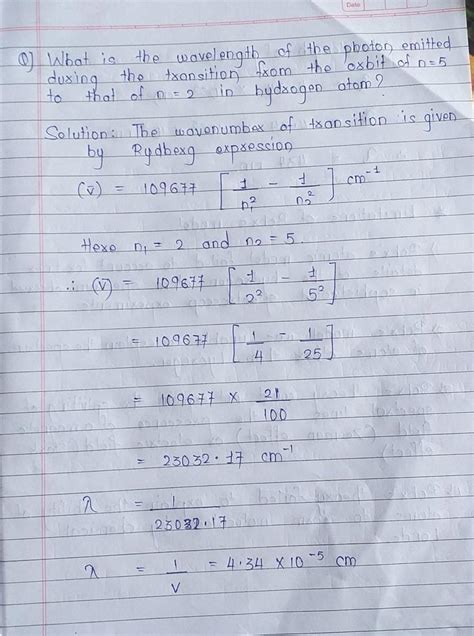 Date
Q) What is the wavelength of the photon emitted
during the transition from the orbit of n=5
to that of n=2 in hydrogen atom?
Solution: The wavenumber of transition is given
by Rydberg expression
(v̄) = 109677 [1/n₁² - 1/n₂²] cm⁻¹
Here n₁ = 2 and n₂ = 5.
∴ (v̄) = 109677 [1/2² - 1/5²]
= 109677 [1/4 - 1/25]
= 109677 × 21/100
= 23032.17 cm⁻¹
λ = 1/23032.17
λ = 1/v = 4.34 × 10⁻⁵ cm